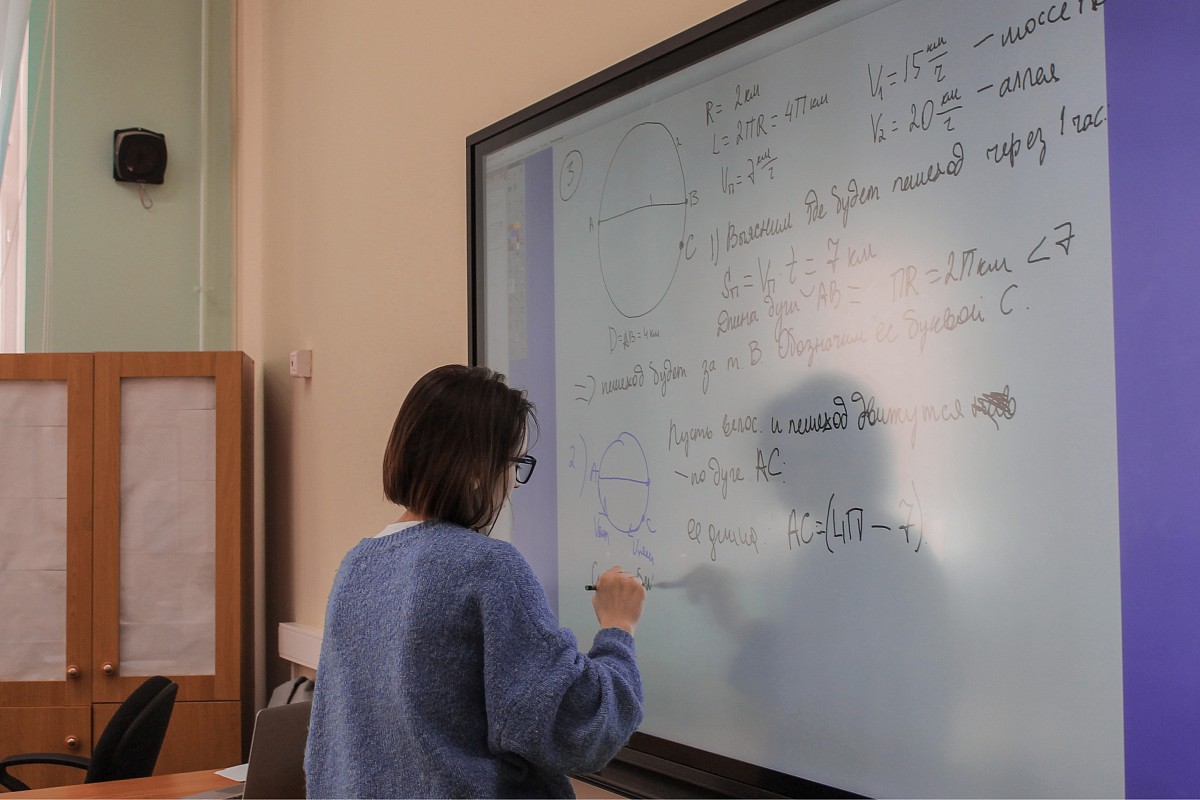 3
R = 2км
L = 2πR = 4π км
Vп = 7 км/г
V₁ = 15 км/г — шоссе
V₂ = 20 км/г — аллея
2
A
1
B
C
D = AB = 4км
1) Выясним где будет пешеход через 1 час.
Sп = Vп · t = 7 км
Длина дуги ◡AB = πR = 2π км < 7
=> пешеход будет за т. B. Обозначим её буквой C.
2)
A
C
Пусть велос. и пешеход движутся
— по дуге AC:
её длина: AC = (4π − 7).